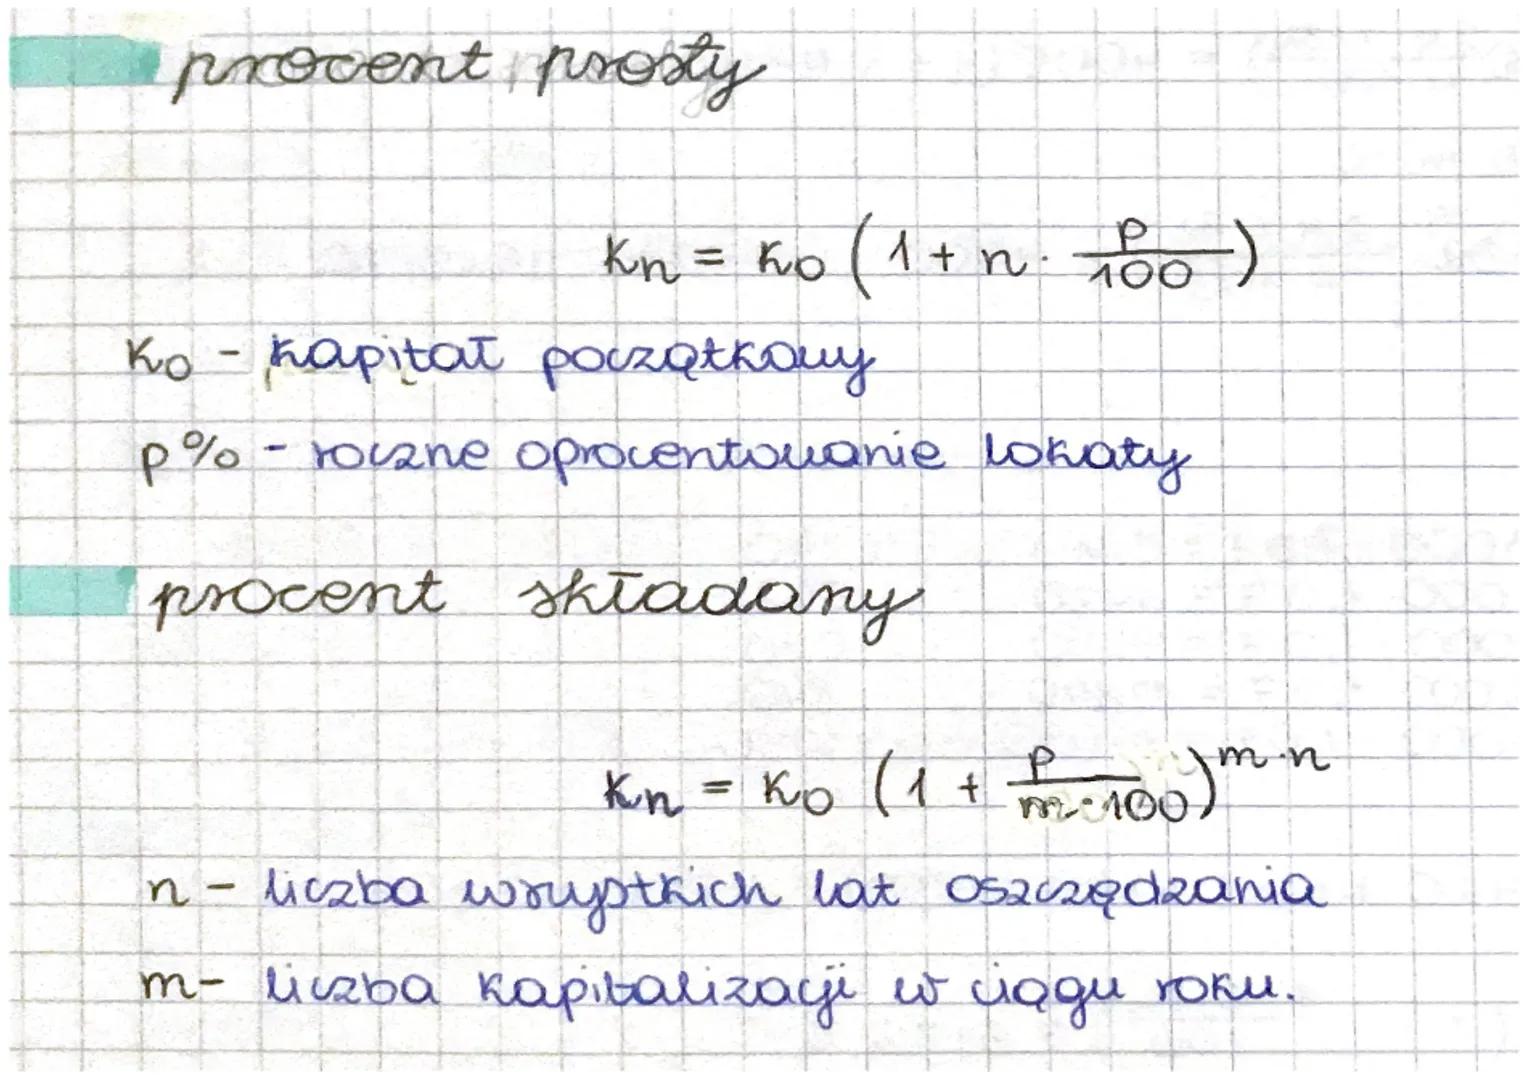 procent prosty
Kn = K0 ( 1 + n · p/100 )
K0 - kapitał początkowy
p% - roczne oprocentowanie lokaty
procent składany
Kn = K0 ( 1 + p/m·100 )^m·n
n - liczba wszystkich lat oszczędzania
m - liczba kapitalizacji w ciągu roku.